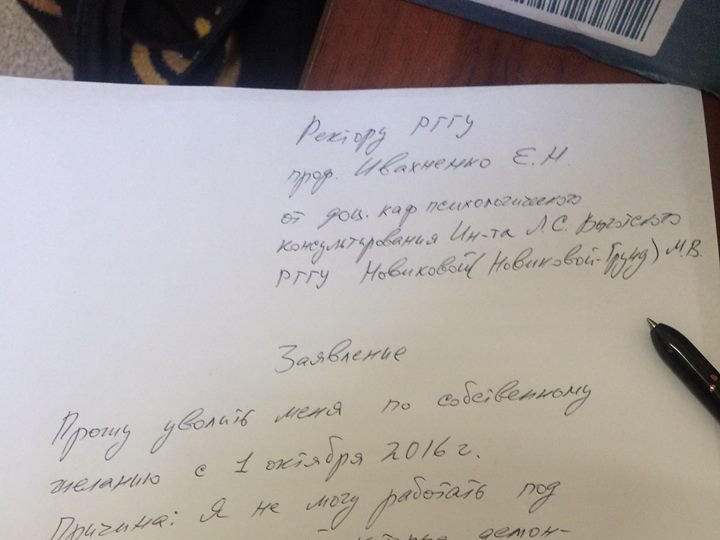 Ректору РГГУ
проф. Ивахненко Е.Н.
от доц. каф психологического
консультирования Ин-та Л.С. Выготского
РГГУ Новиковой (Новиковой-Грунд) М.В.
Заявление
Прошу уволить меня по собственному
желанию с 1 октября 2016 г.
Причина: Я не могу работать под
которые демон-